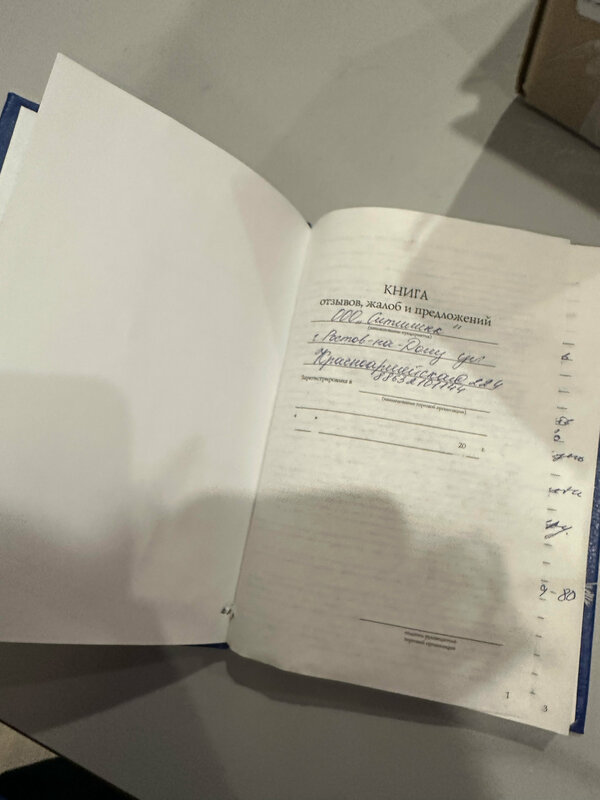 КНИГА
отзывов, жалоб и предложений
ООО „Ситилинк"
(наименование предприятия)
г. Ростов-на-Дону ул.
Красноармейская 224
88632101144
Зарегистрирована в
(наименование торговой организации)
« »
20 г.
подпись руководителя
торговой организации
1
3
9-80